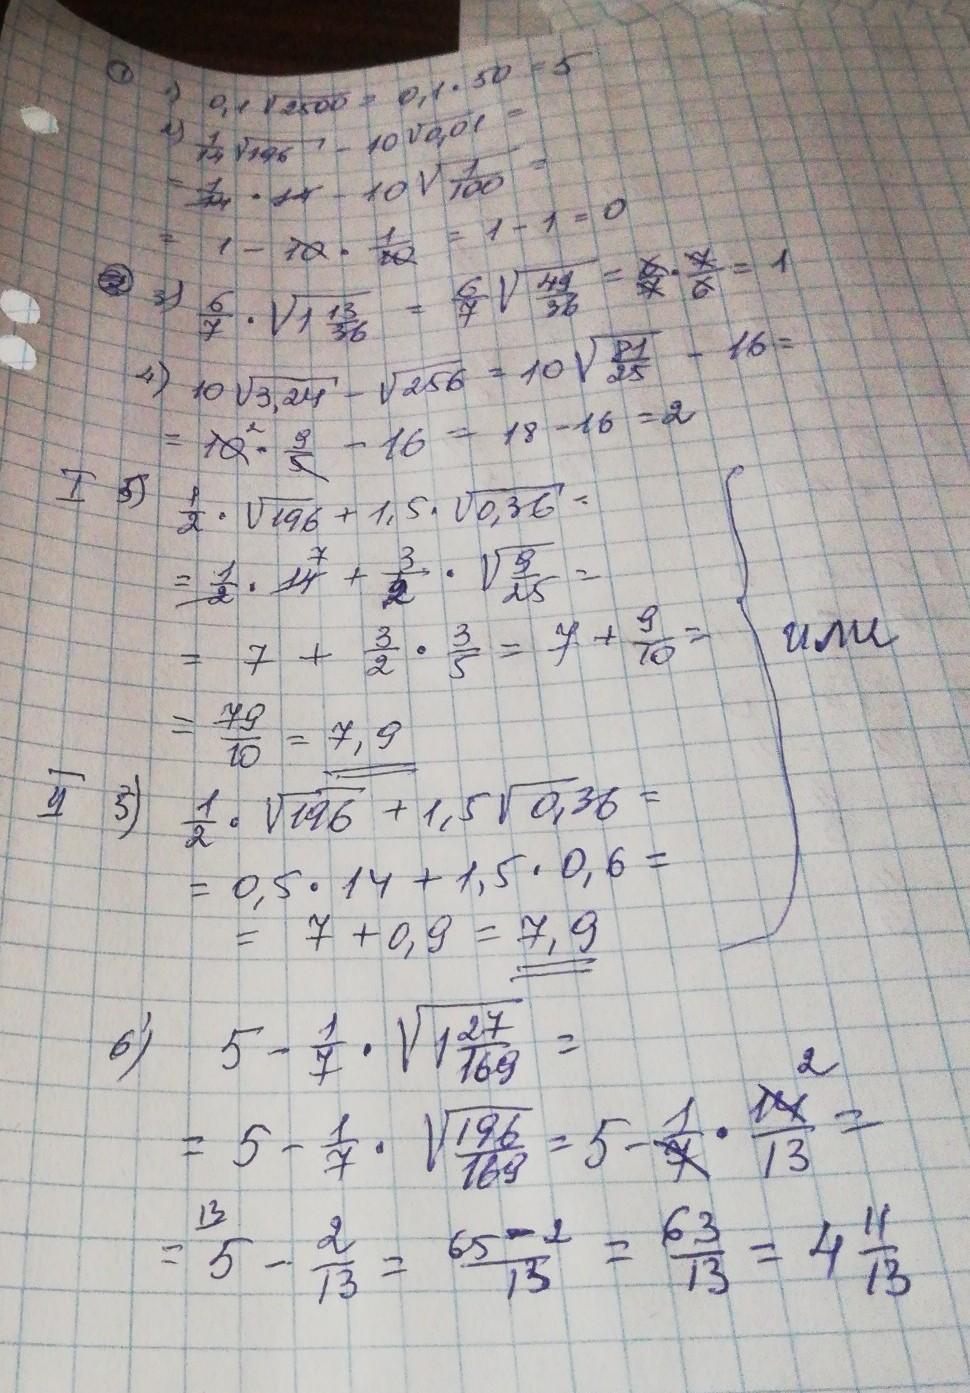 ① 1) 0,1 √2500 = 0,1 · 50 = 5
2) 1/14 √196 - 10√0,01 =
= 1/14 · 14 - 10 √1/100 =
= 1 - 10 · 1/10 = 1 - 1 = 0
3) 6/7 · √1 13/36 = 6/7 √49/36 = 6/7 · 7/6 = 1
4) 10 √3,24 - √256 = 10 √81/25 - 16 =
= 10² · 9/5 - 16 = 18 - 16 = 2
I 5) 1/2 · √196 + 1,5 · √0,36 =
= 1/2 · 14⁷ + 3/2 · √9/25 =
= 7 + 3/2 · 3/5 = 7 + 9/10 =
или
= 79/10 = 7,9
II 5) 1/2 · √196 + 1,5 √0,36 =
= 0,5 · 14 + 1,5 · 0,6 =
= 7 + 0,9 = 7,9
6) 5 - 1/7 · √1 27/169 =
= 5 - 1/7 · √196/169 = 5 - 1/7 · 14²/13 =
= ¹³5 - 2/13 = 65 - 2/13 = 63/13 = 4 11/13